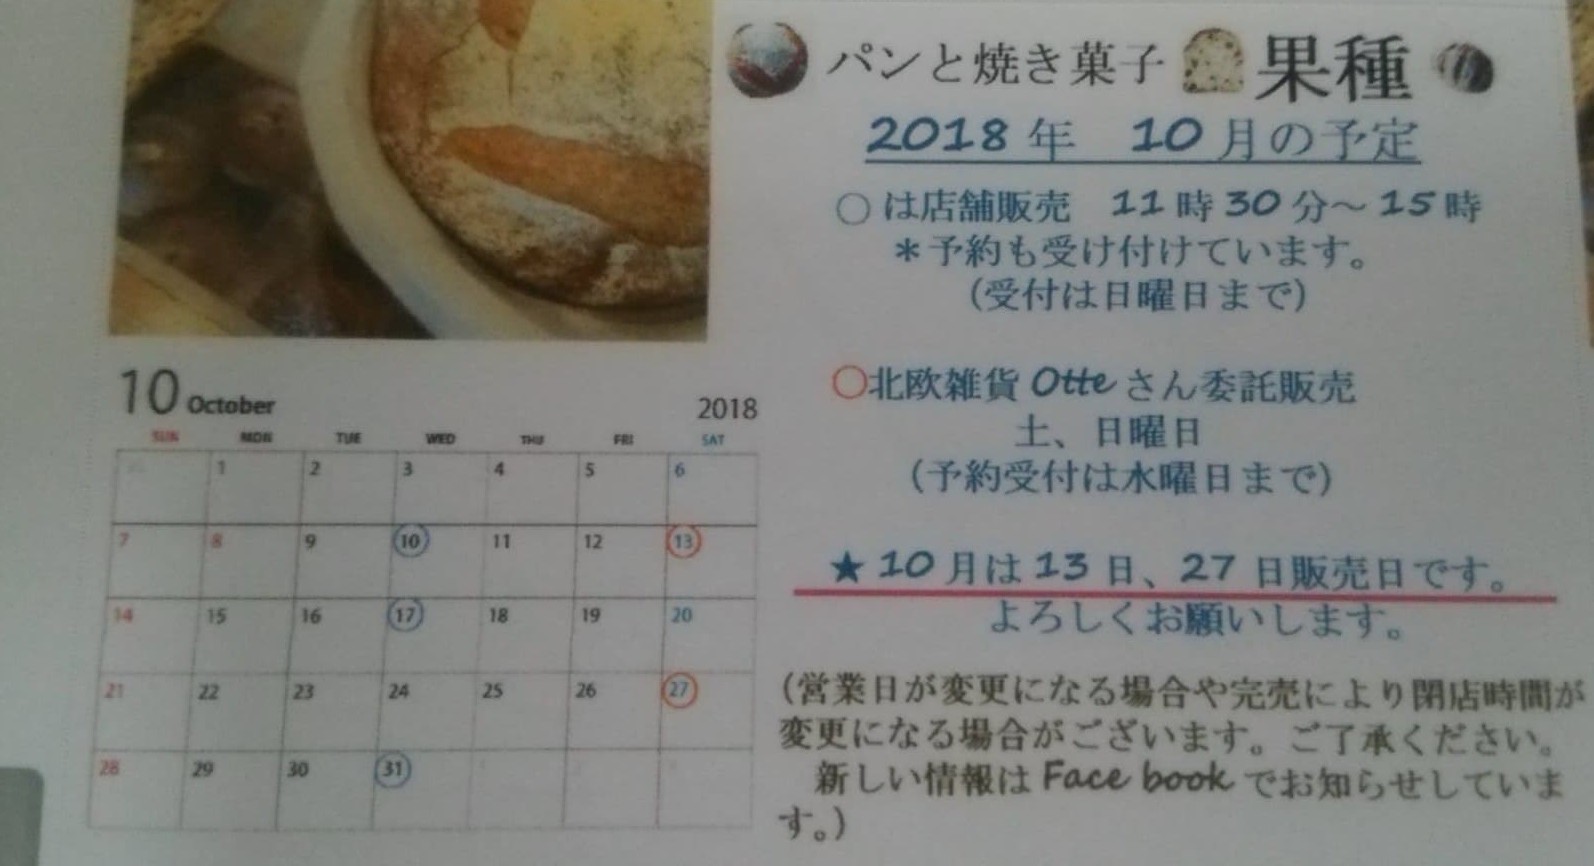 パンと焼き菓子 果種
2018年 10月の予定
○は店舗販売 11時30分～15時
＊予約も受け付けています。
(受付は日曜日まで)
○北欧雑貨Otteさん委託販売
土、日曜日
(予約受付は水曜日まで)
★10月は13日、27日販売日です。
よろしくお願いします。
(営業日が変更になる場合や完売により閉店時間が
変更になる場合がございます。ご了承ください。
新しい情報はFace bookでお知らせしていま
す。)
10 October 2018
SUN MON TUE WED THU FRI SAT
1 2 3 4 5 6
7 8 9 10 11 12 13
14 15 16 17 18 19 20
21 22 23 24 25 26 27
28 29 30 31